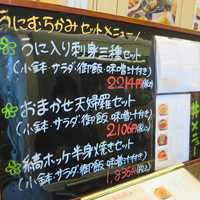 うにむらかみセットメニュー！
うに入り刺身三種セット
(小鉢・サラダ・御飯・味噌汁付き)
2,214円(税込)
おまかせ天婦羅セット
(小鉢・サラダ・御飯・味噌汁付き)
2,106円(税込)
縞ホッケ半身焼きセット
(小鉢・サラダ・御飯・味噌汁付き)
1,836円(税込)
丼メニュー